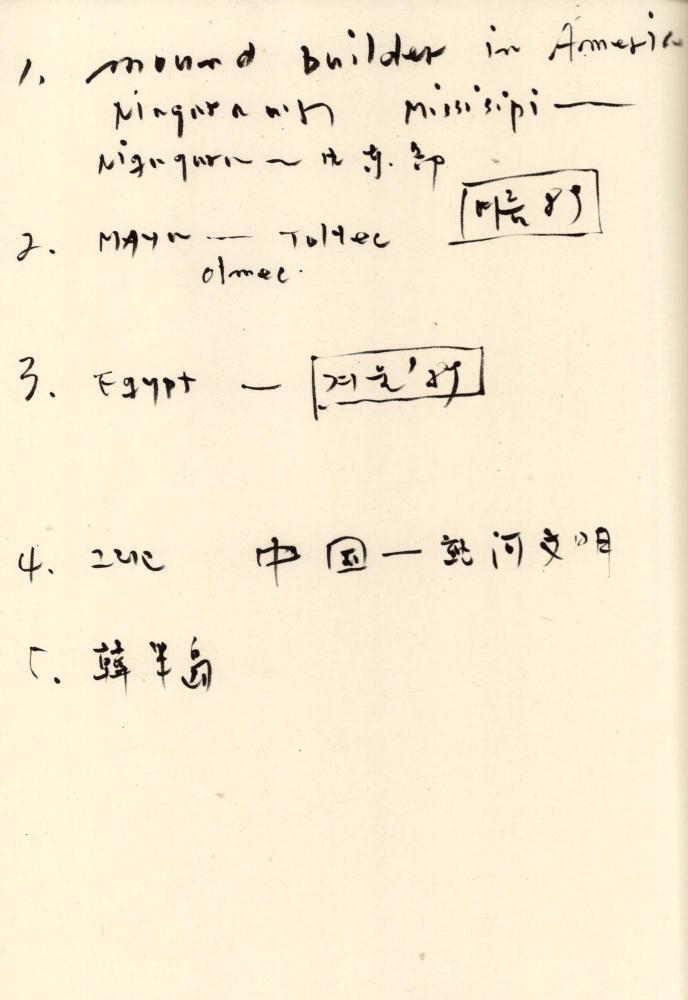 1. mound builder in America
Missisipi —
Niagara ~ 北 東. 部
2. MAYA — Toltec
olmec.
3. Egypt —
4. 그리고 中 国 — 黄 河 文 明
5. 韓 半 島